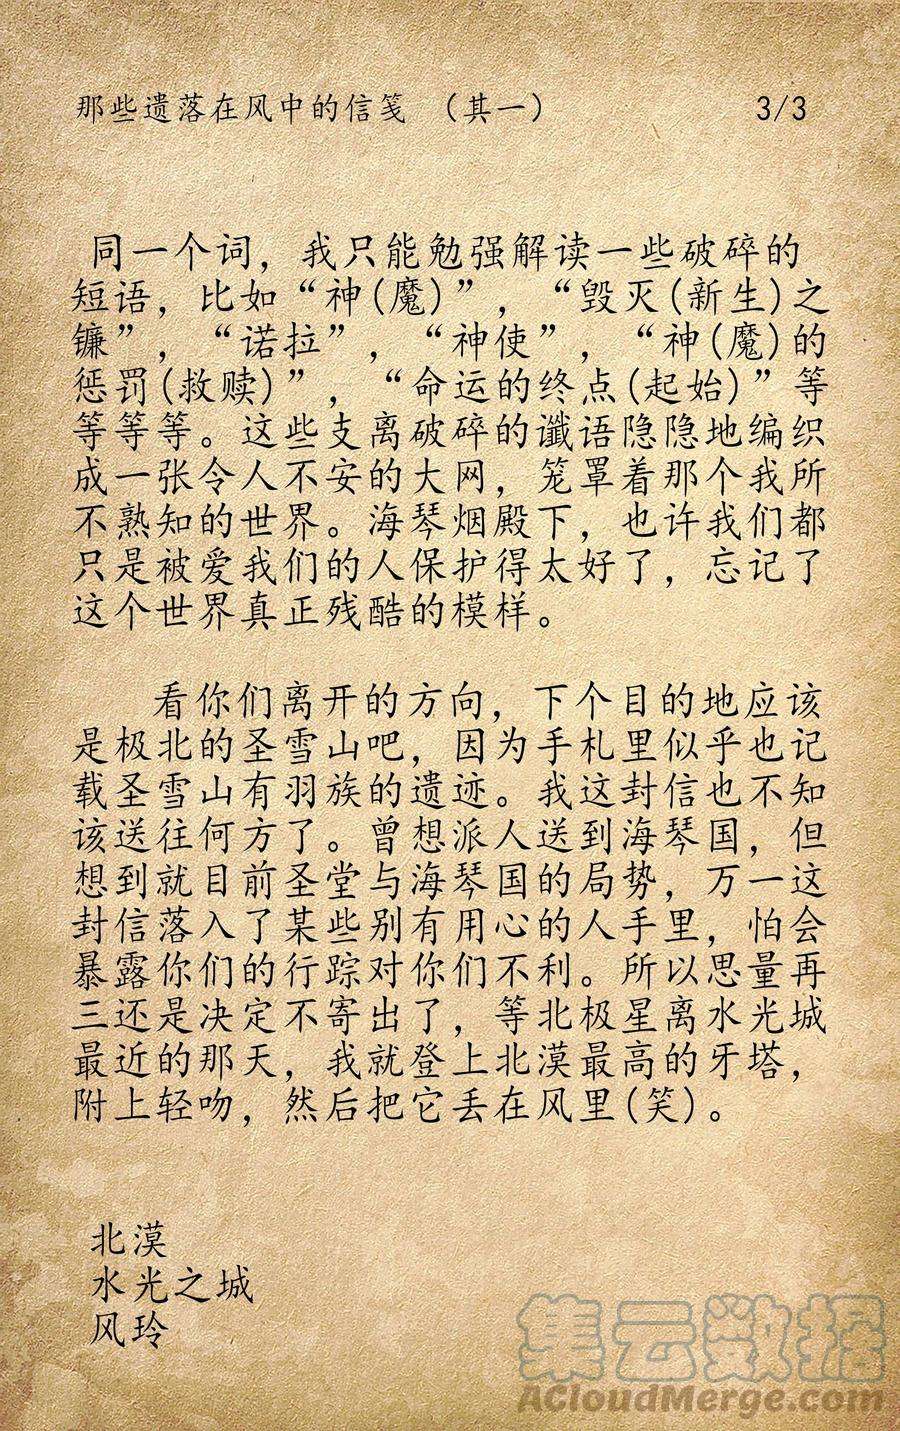 那些遗落在风中的信笺 （其一） 3/3
同一个词，我只能勉强解读一些破碎的
短语，比如“神(魔)”，“毁灭(新生)之
镰”，“诺拉”，“神使”，“神(魔)的
惩罚(救赎)”，“命运的终点(起始)”等
等等等。这些支离破碎的谶语隐隐地编织
成一张令人不安的大网，笼罩着那个我所
不熟知的世界。海琴烟殿下，也许我们都
只是被爱我们的人保护得太好了，忘记了
这个世界真正残酷的模样。
看你们离开的方向，下个目的地应该
是极北的圣雪山吧，因为手札里似乎也记
载圣雪山有羽族的遗迹。我这封信也不知
该送往何方了。曾想派人送到海琴国，但
想到就目前圣堂与海琴国的局势，万一这
封信落入了某些别有用心的人手里，怕会
暴露你们的行踪对你们不利。所以思量再
三还是决定不寄出了，等北极星离水光城
最近的那天，我就登上北漠最高的牙塔，
附上轻吻，然后把它丢在风里(笑)。
北漠
水光之城
风玲
集云数据
ACloudMerge.com